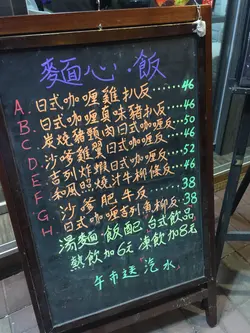 麥麵心·飯
A. 日式咖喱雞扒反 46
B. 日式咖喱真味豬扒反 46
C. 炭燒豬頸肉日式咖喱反 50
D. 沙嗲雞翼日式咖喱反 46
E. 吉列炸蝦日式咖喱反 52
F. 和風照燒汁牛柳條反 46
G. 沙嗲肥牛反 38
H. 日式咖喱吉列魚柳反 38
湯麵·飯配台式飲品
熱飲加6元凍飲加8元
午市送汽水